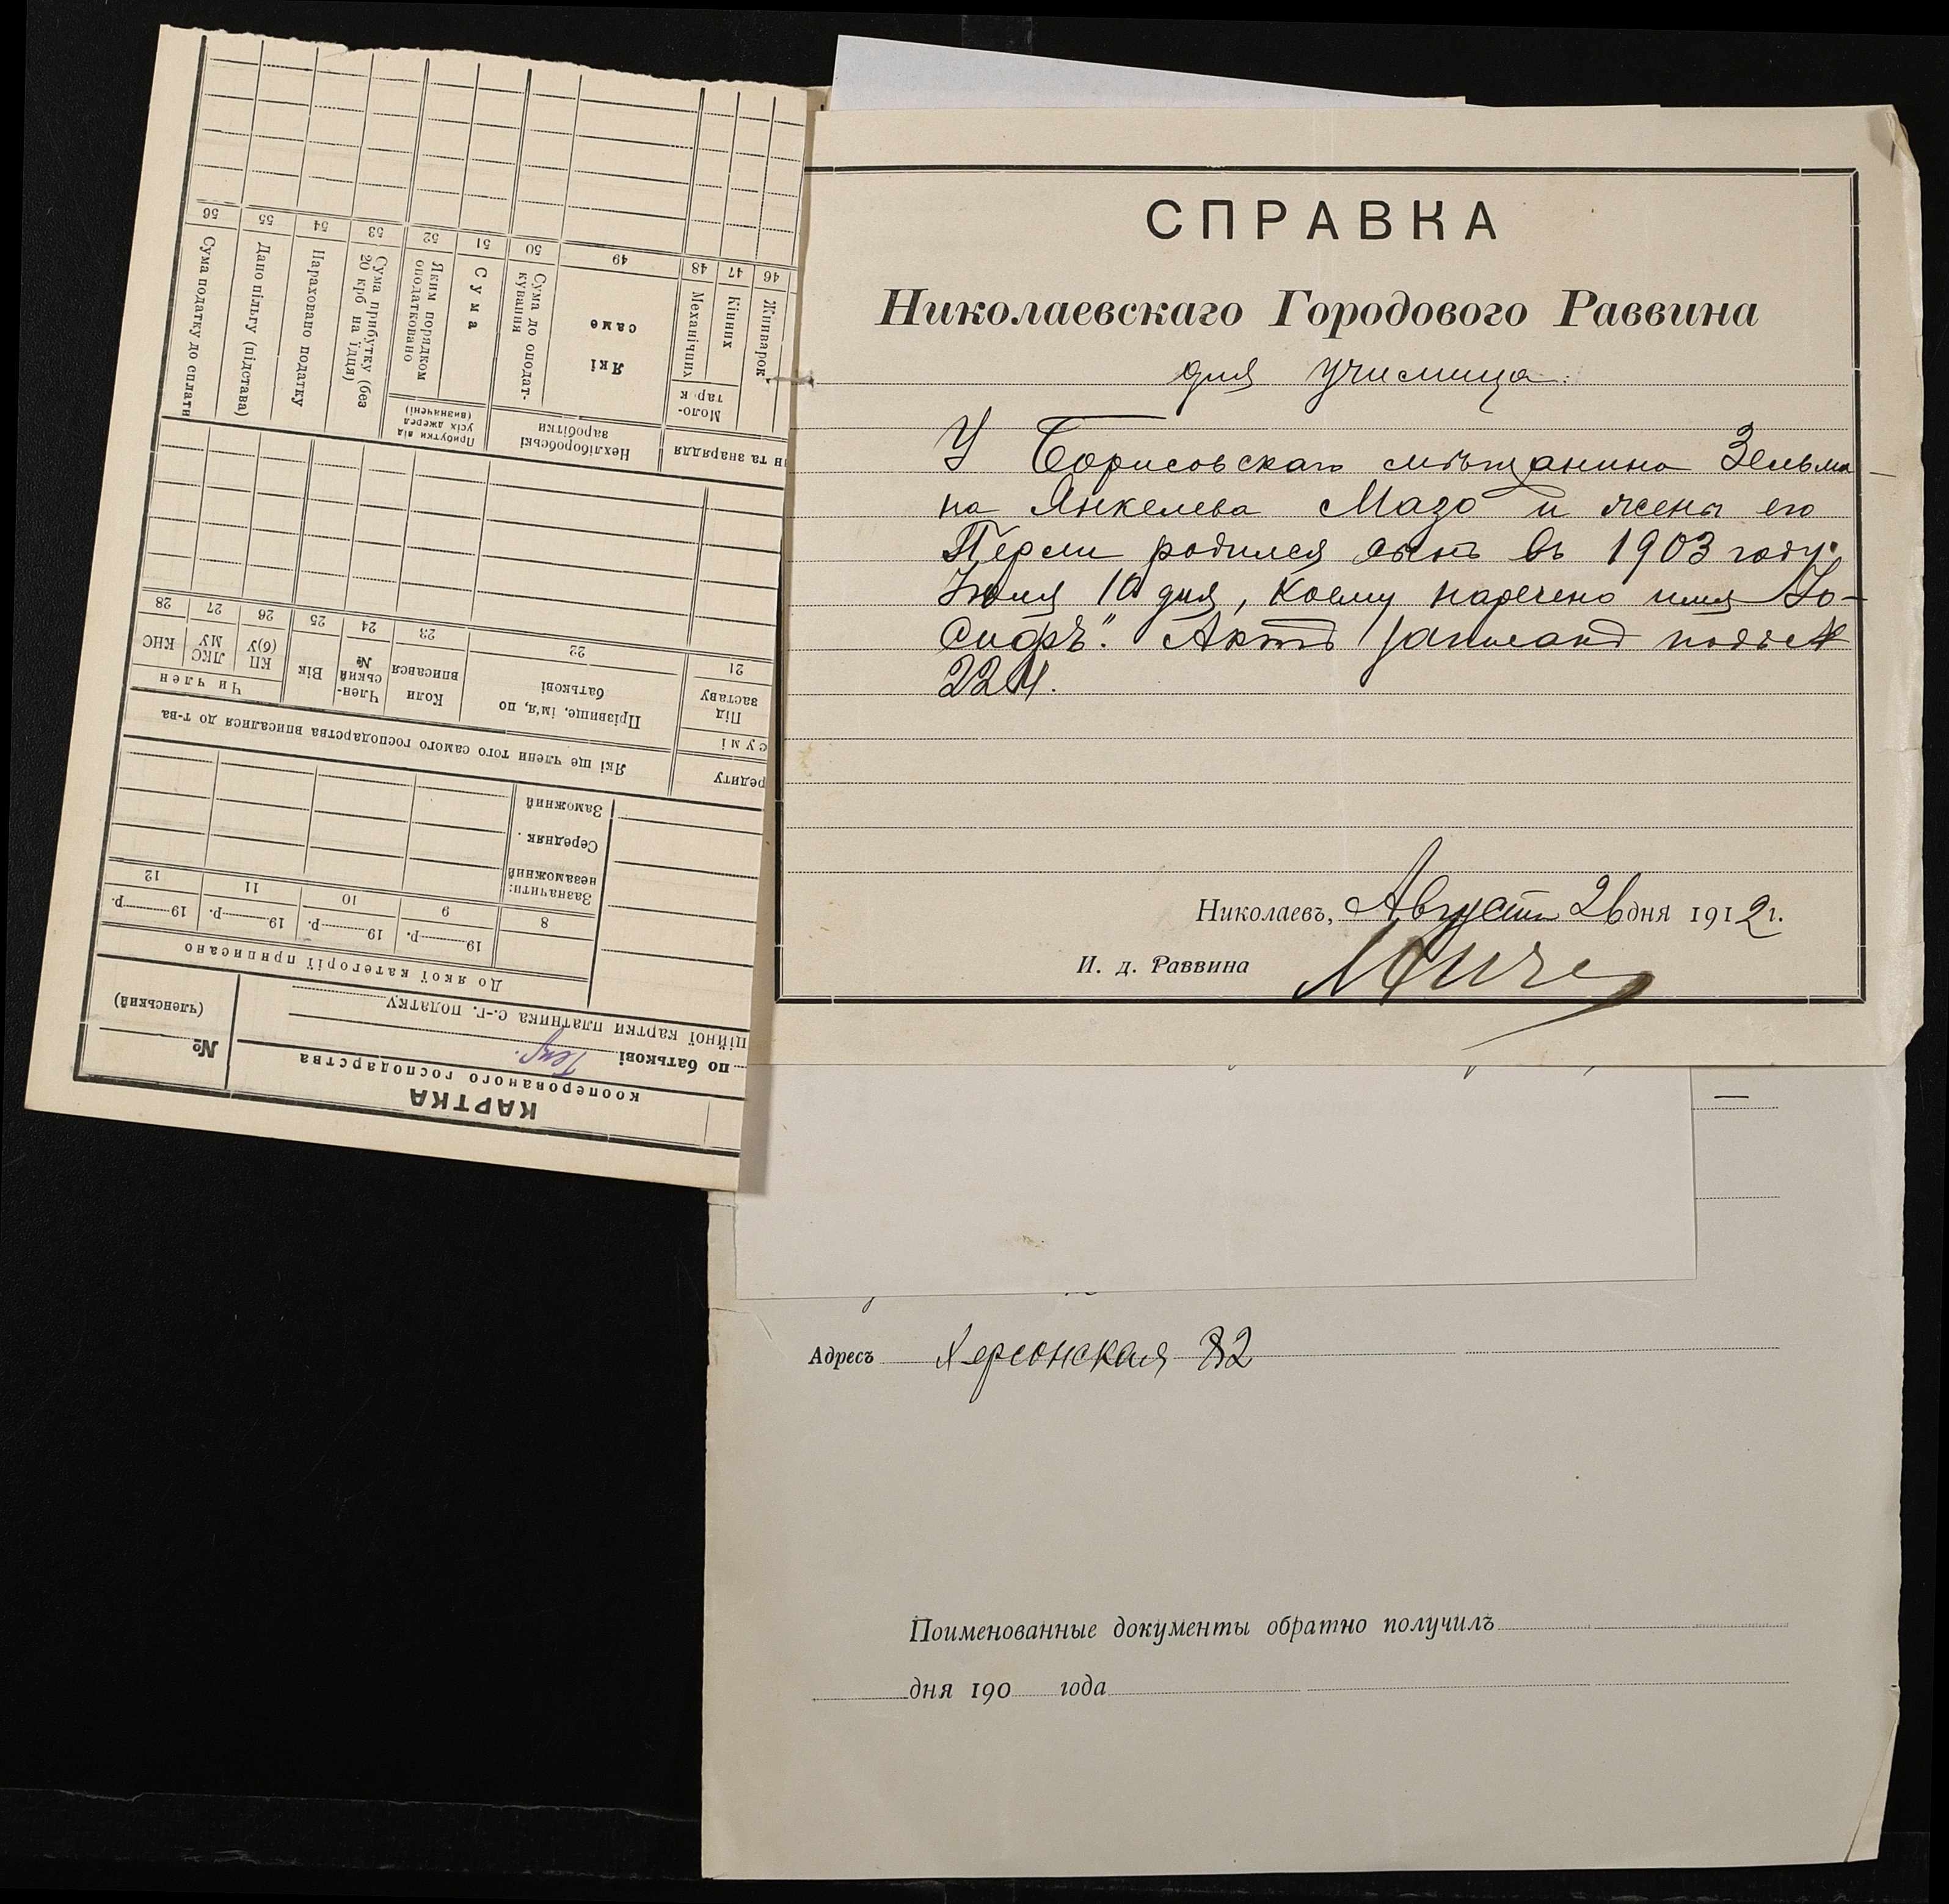 СПРАВКА
Николаевскаго Городового Раввина
для училища:
У Борисовскаго мѣщанина Зельма
на Янкелева Мазо и жены его
Перли родился сынъ въ 1903 году
Іюля 10 дня, коему наречено имя „Іо-
сифъ". Актъ записанъ подъ №
224.
Николаевъ, Августа 26 дня 1912 г.
И. д. Раввина
Адресъ Херсонская 82
Поименованные документы обратно получилъ
дня 190 года
КАРТКА
кооперованого господарства
№
(членський)
по батькові
ційної картки платника с.-г. податку
До якої категорії приписано
8
19 р.
19 р.
19 р.
19 р.
9
10
11
12
Зазначити:
незаможний
Середняк
Заможний
редиту
Які ще члени того самого господарства вписалися до т-ва
сумі
Під
заставу
Прізвище, ім'я, по
батькові
Коли
вписався
Член-
ський
№
Вік
Чи член
КП
(б)У
ЛКС
МУ
КНС
21
22
23
24
25
26
27
28
н та знаряддя
Нехліборобські
заробітки
Прибутки від
усіх джерел
(визначені)
Жниварок
Моло-
тарк
Кінних
Механічних
Які
саме
Сума до оподат-
кування
Сума
Яким порядком
оподатковано
Сума прибутку (без
20 крб на їдця)
Нараховано податку
Дано пільгу (підстава)
Сума податку до сплати
46
47
48
49
50
51
52
53
54
55
56